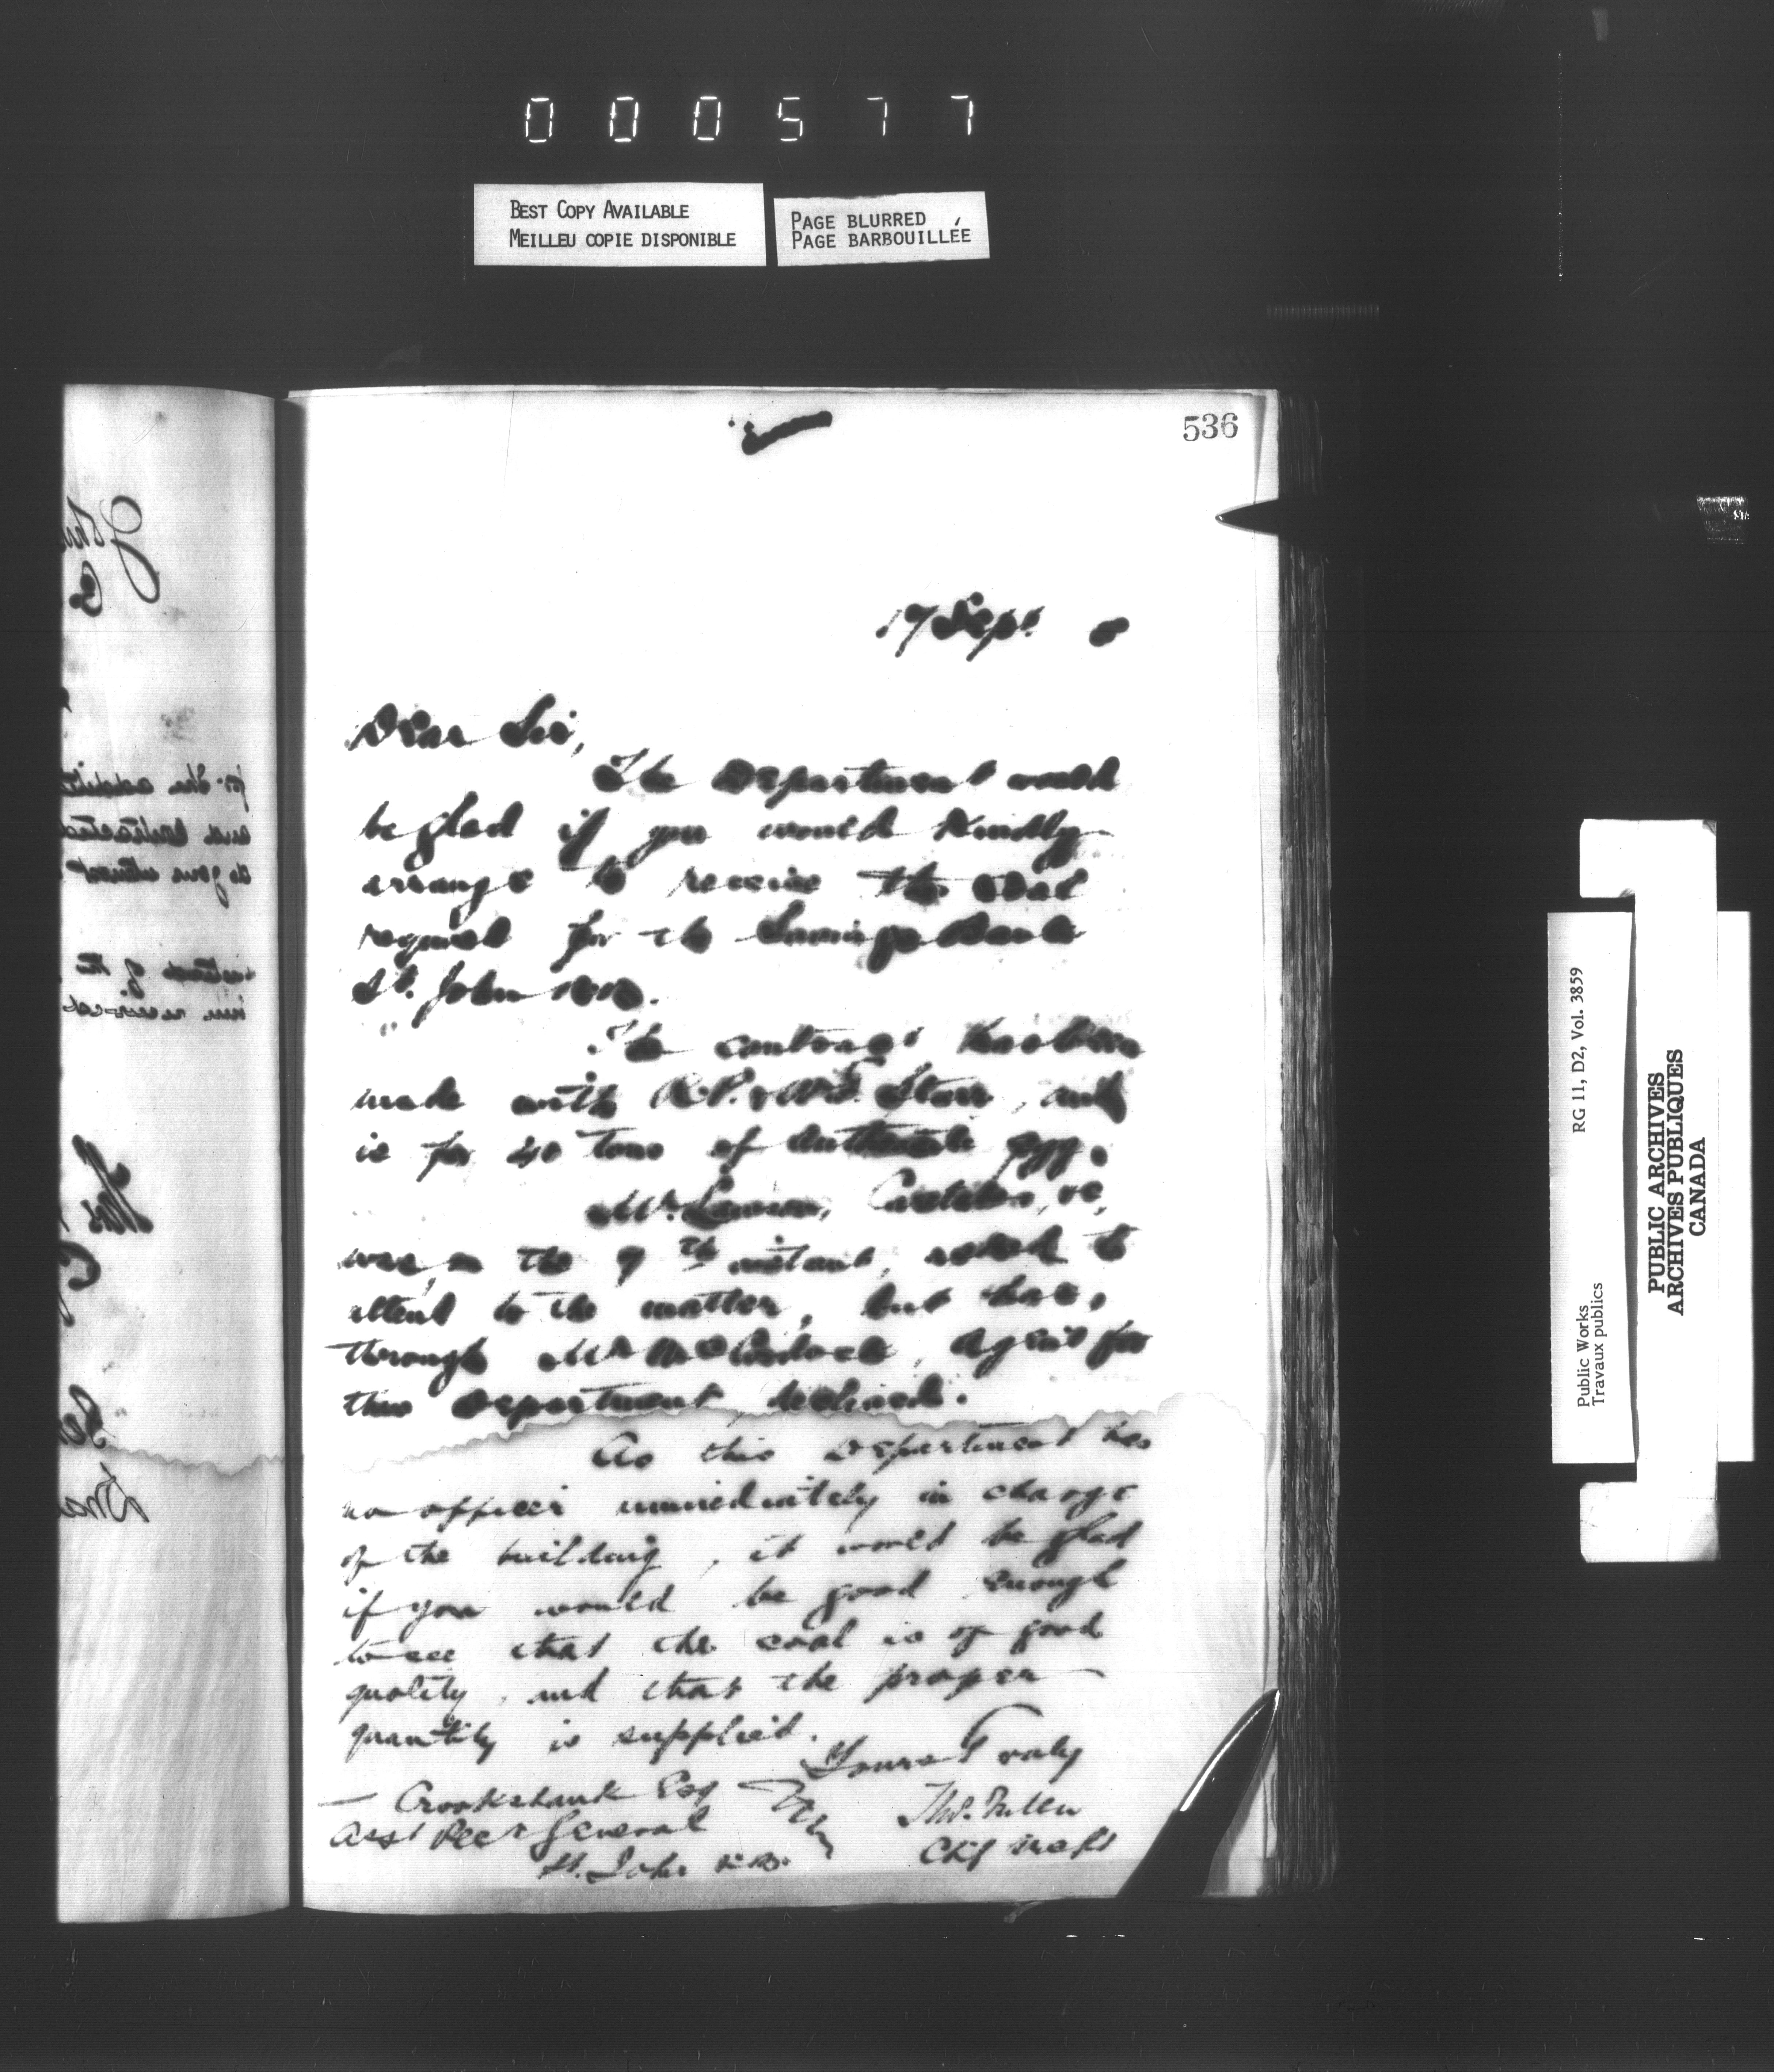 000577
BEST COPY AVAILABLE
MEILLEU COPIE DISPONIBLE
PAGE BLURRED
PAGE BARBOUILLÉE
536
17 Sept.
Dear Sir,
The Department would
be glad if you would kindly
arrange to receive the coal
required for the Savings Bank
St. John N.B.
The contract has been
made with R.P. & W.F. Starr, and
is for 40 tons of Anthracite egg.
Mr.
was, on the 9th instant, asked to
attend to the matter, but has,
through Mr, Agent for
this Department, declined.
As this Department has
no officer immediately in charge
of the building, it would be glad
if you would be good enough
to see that the coal is of good
quality, and that the proper
quantity is supplied.
Yours Truly
Crookshank Esq
Thos. Fuller
Asst Recr General
Chf Archt
St. John N.B.
Public Works
Travaux publics
RG 11, D2, Vol. 3859
PUBLIC ARCHIVES
ARCHIVES PUBLIQUES
CANADA